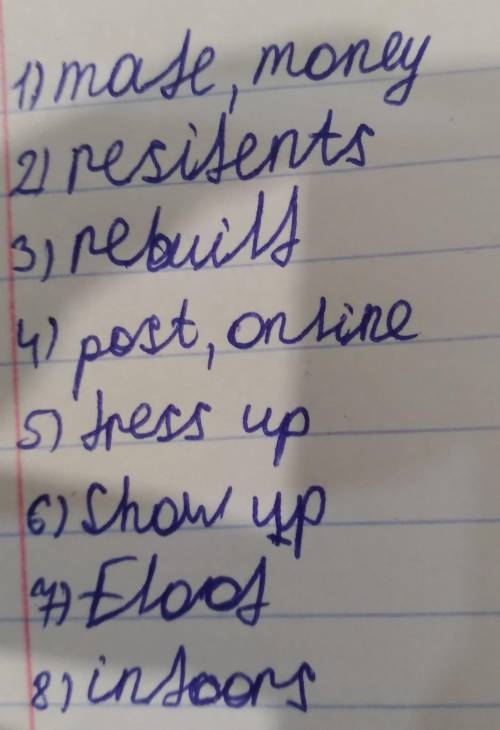 1) made, money
2) residents
3) rebuild
4) post, online
5) dress up
6) show up
7) Flood
8) indoors